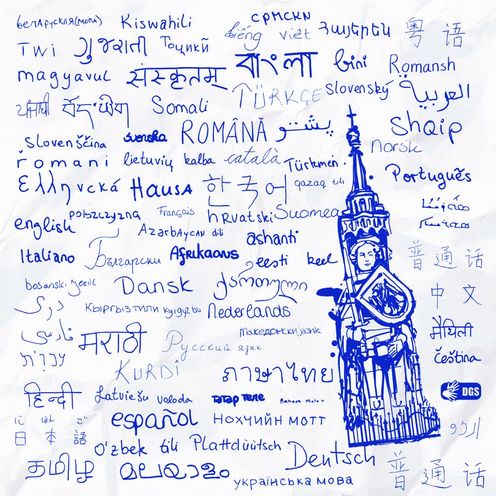 беларуская(мова) Kiswahili српски
Twi ગુજરાતી Тоҷикӣ tiếng việt Հայերեն 粤 语
magyarul संस्कृतम् বাংলা bini Romansh
ਪੰਜਾਬੀ Somali TÜRKÇE Slovenský العربية
Slovenščina svenska ROMÂNĂ پښتو Norsk Shqip
romani lietuvių kalba català Türkmen Português
Hausa 한국어 qazaq tili
english polszczyzna Français hrvatski Suomea
Azərbaycan dili ashanti
Italiano Български Afrikaans eesti keel 普 通 话
bosanski jezik Dansk ქართული 中 文
دری кыргыз тили Nederlands
فارسی मराठी Русский язык Македонски јазик मैथिली
עברית KURDÎ čeština
हिन्दी Latviešu valoda ภาษาไทย татар теле DGS
に ほん ご español НОХЧИЙН МОТТ اردو
日 本 語 O'zbek tili Plattdüütsch
தமிழ் മലയാളം Deutsch 普 通 话
українська мова